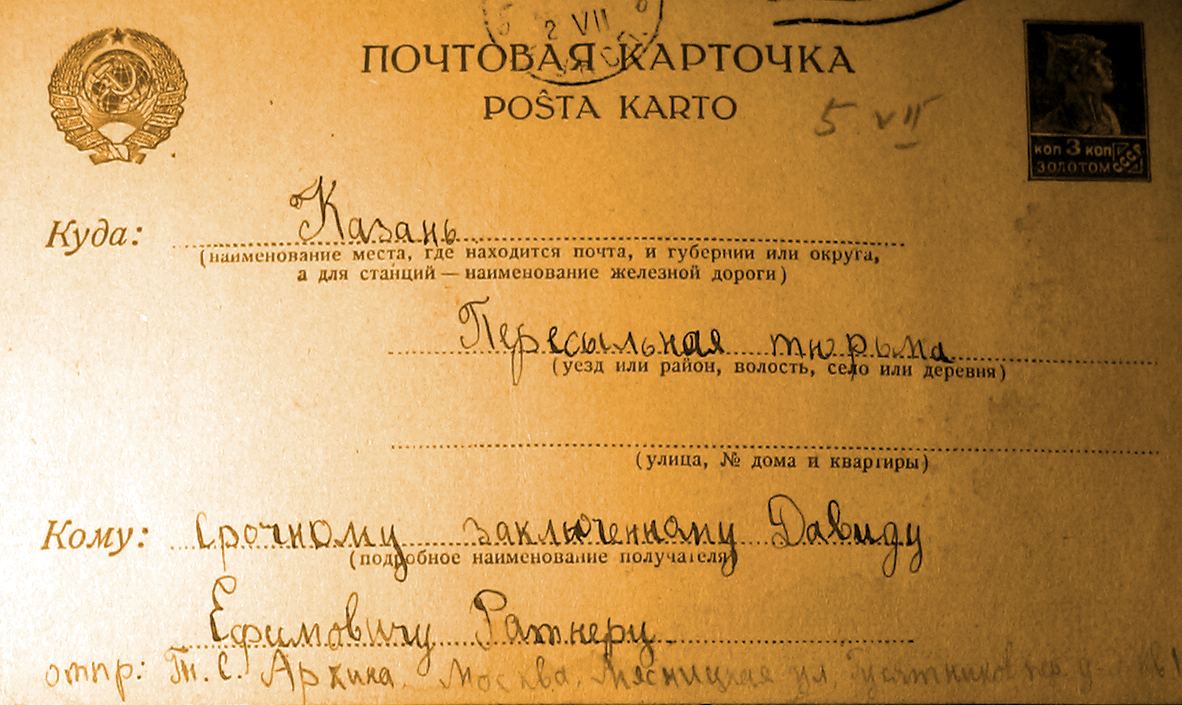 2 VII
ПОЧТОВАЯ КАРТОЧКА
POŜTA KARTO
5 VII
КОП 3 КОП
ЗОЛОТОМ СССР
Куда: Казань
(наименование места, где находится почта, и губернии или округа,
а для станций — наименование железной дороги)
Пересыльная тюрьма
(уезд или район, волость, село или деревня)
(улица, № дома и квартиры)
Кому: Срочному заключенному Давиду
(подробное наименование получателя)
Ефимовичу Ратнеру
отпр: Т. С. Архина. Москва, Мясницкая ул, Гусятников пер.